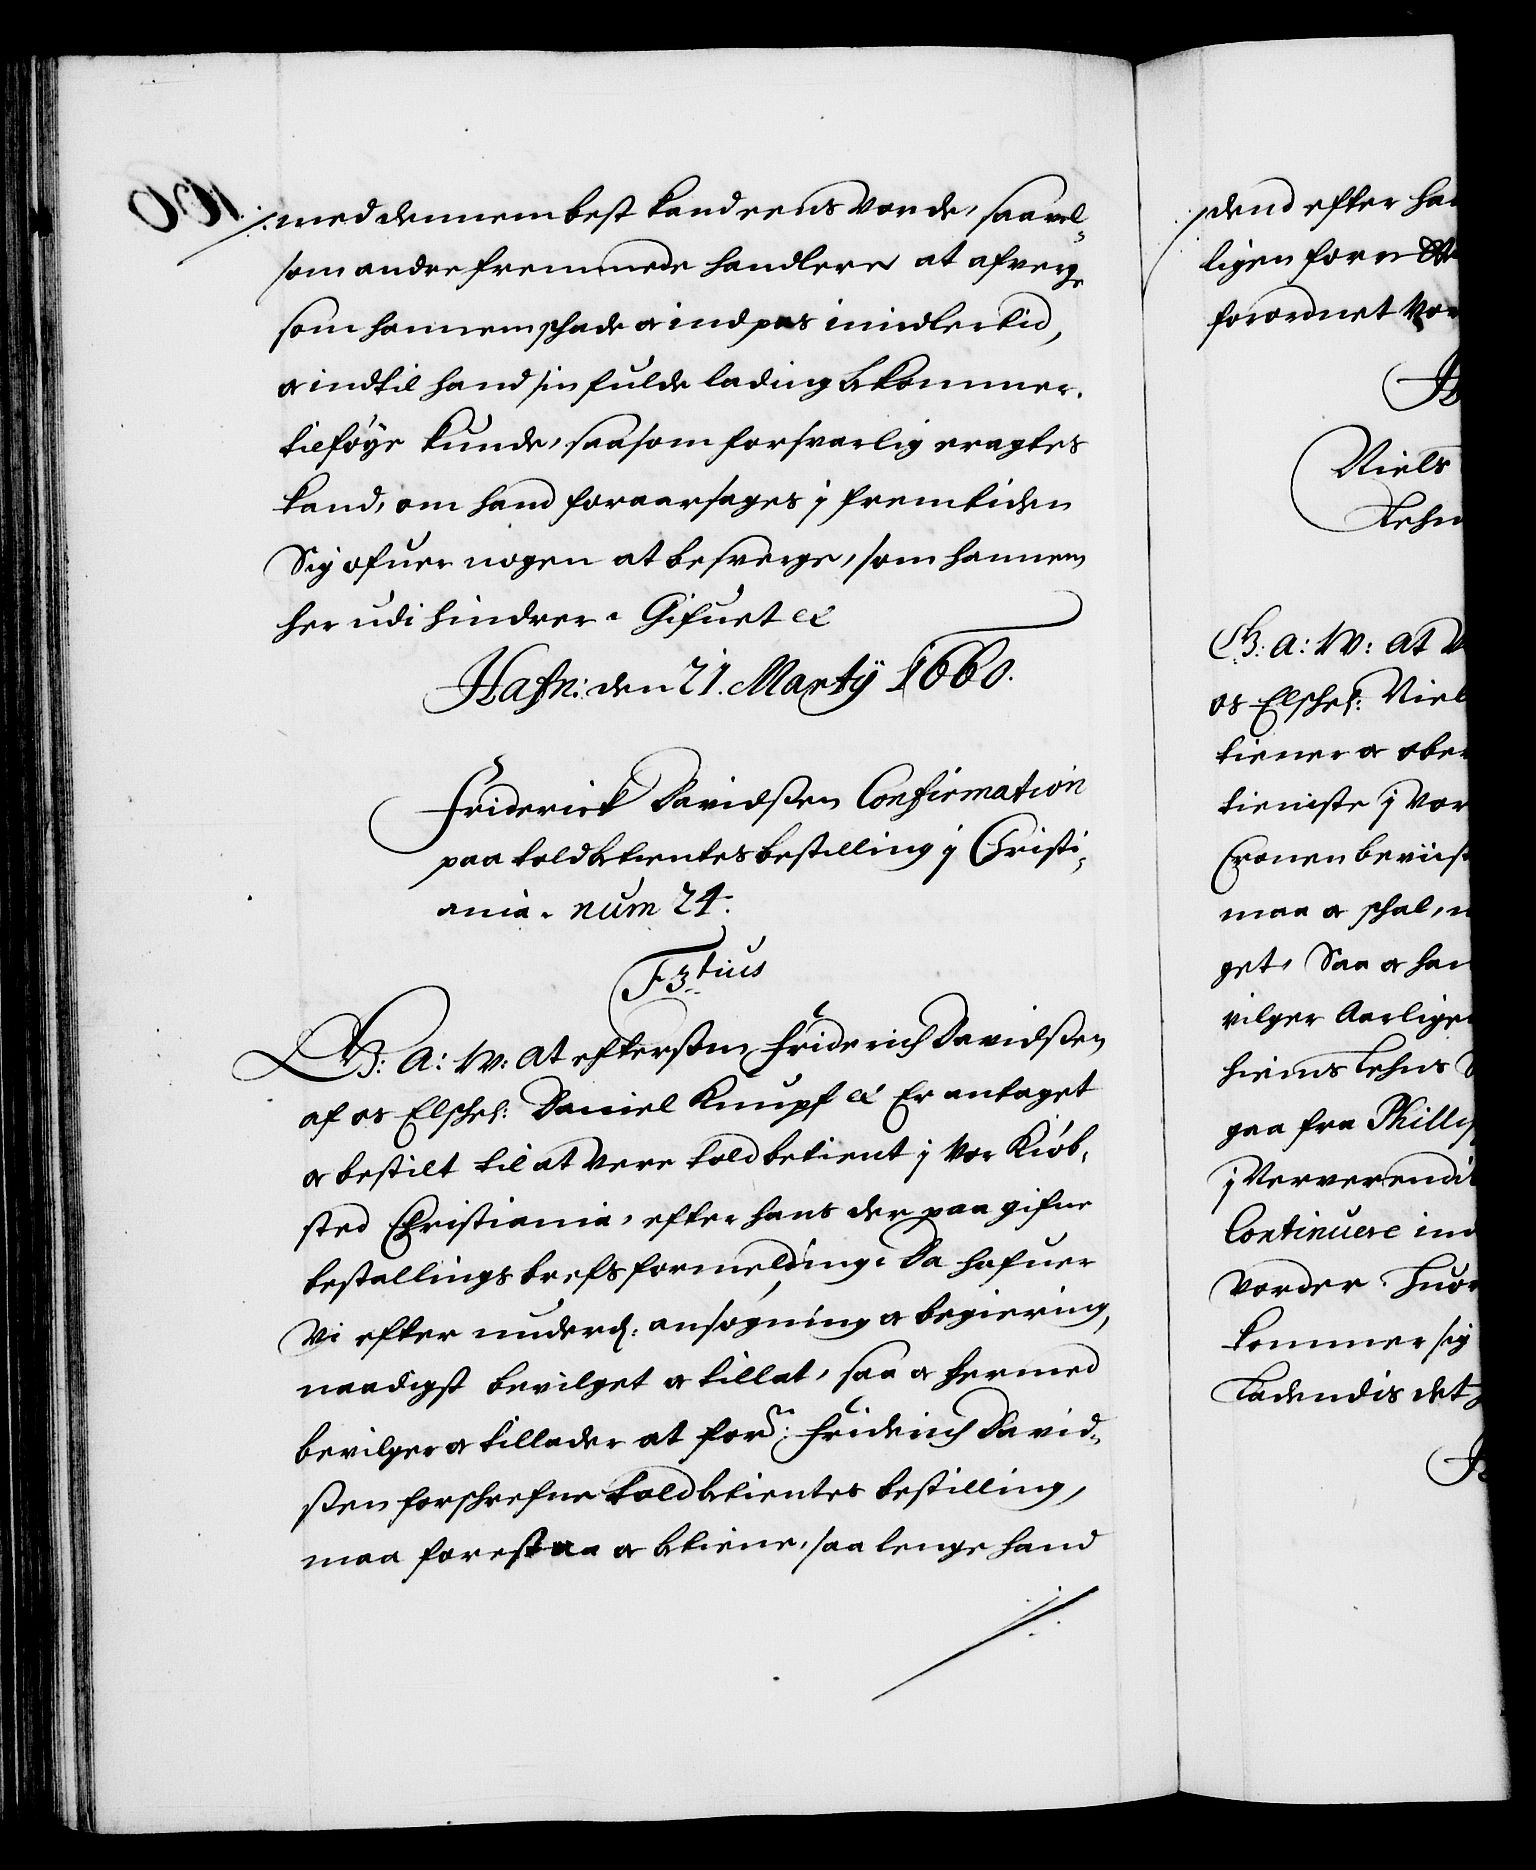 med dennem best kand eens vorde, saavel-
som andre fremmede handlere at afverge
som hannem schade or indpas imidlertid,
or indtil hand sin fulde lading bekommer,
tilføye kunde, saasom forsvarlig eragtes
kand, om hand foraarsages j fremtiden
Sig ofuer nogen at besverge, som hannem
her udi hindrer. Gifuet &
Hafn: den 21. Martij 1660.
Friderick Davidssen Confirmation
paa toldbetientes bestilling j Christi-
ania. num 24.
F 3tius
G: A: W: At eftersom Friderich Davidssen
af os Elschel: Daniel Knupf & Er antaget
or bestilt til at vere toldbetient j vor Kiøb-
sted Christiania, efter hans der paa gifne
bestallings brefs formelding. Da hafuer
Vi efter underd: ansøgning or begiering,
naadigst bevilget or tillat, saa or hermed
bevilger or tillader at for.ne Friderich David-
ssen forschrefne toldbetientes bestilling,
maa forestaa or betiene, saa lenge hand
dend efter
ligen forn
forordnet
Niels
Lehn
G: A: W: At
os Elschel: Niel
tiener or ober
tieniste j vor
Cronen beviist
maa or schal,
get, Saa or
vilger Aarlige
hiems Lehns
gaa fra Phillip
j Ververendis
Continuere ind
vorder. Huor
kommer sig
Ladendis det